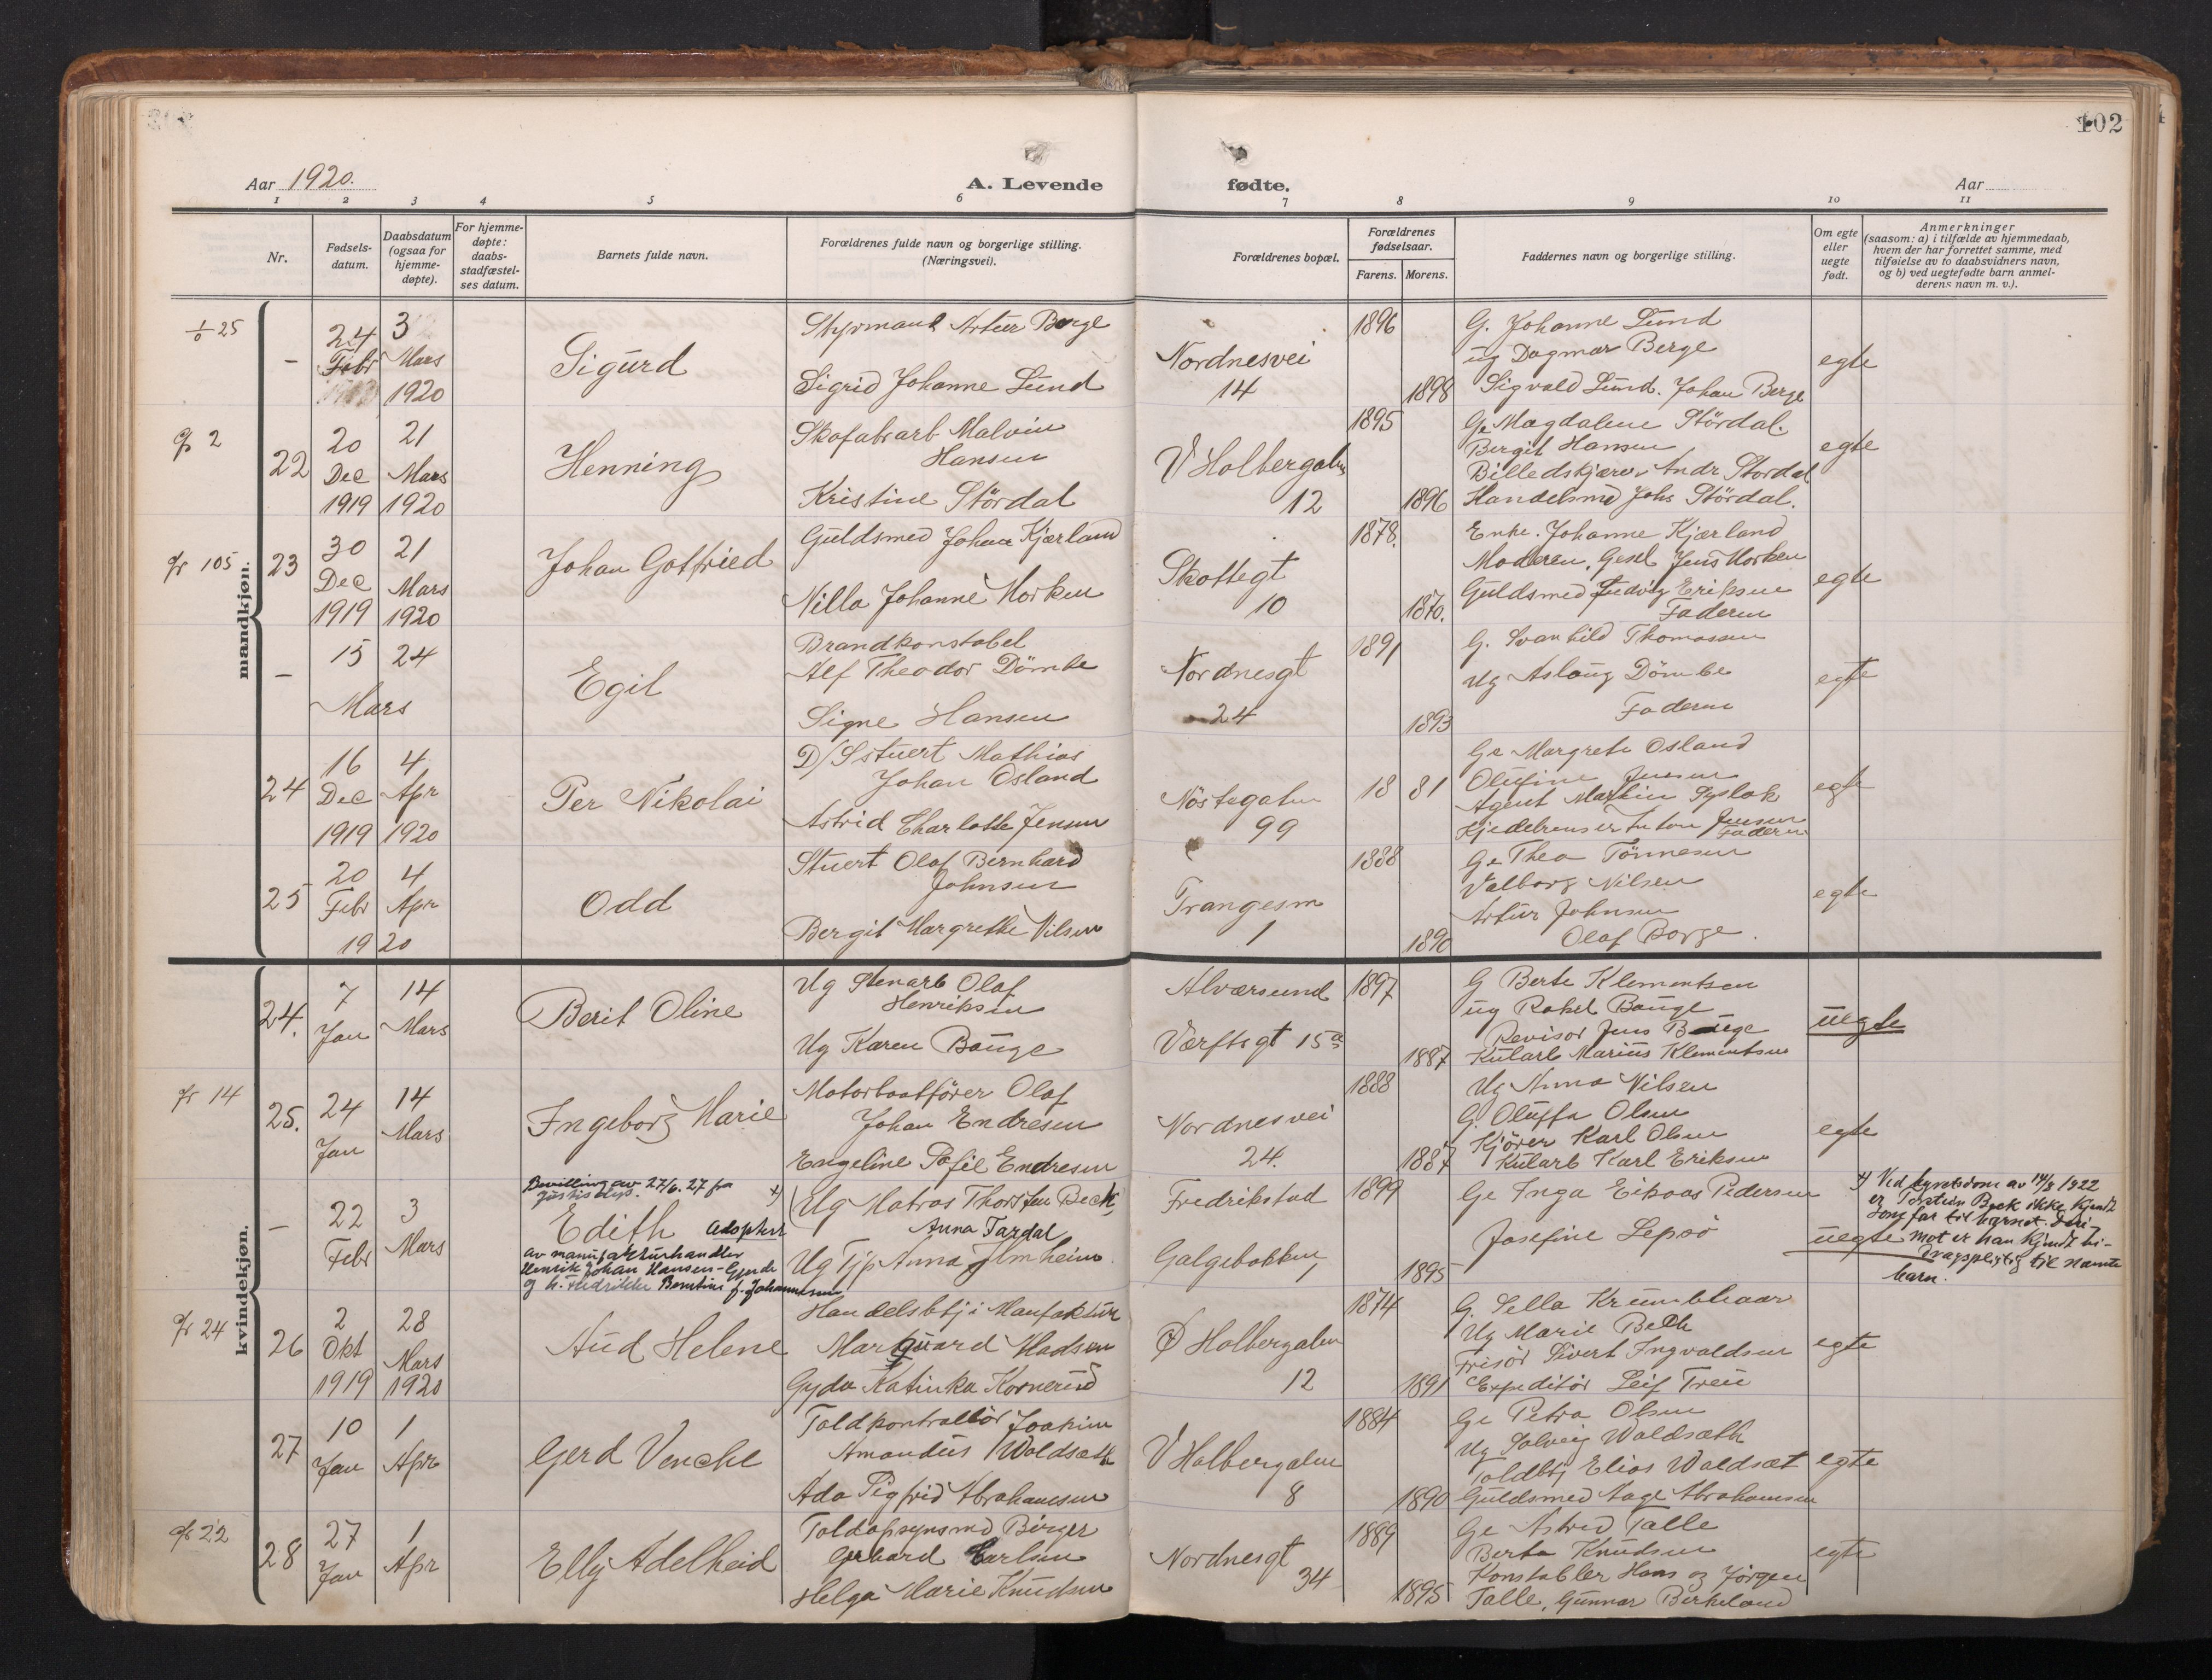 102
Aar 1920.
A. Levende fødte.
Aar
1 2 3 4 5 6 7 8 9 10 11
Nr.
Fødsels-
datum.
Daabsdatum
(ogsaa for
hjemme-
døpte).
For hjemme-
døpte:
daabs-
stadfæstel-
ses datum.
Barnets fulde navn.
Forældrenes fulde navn og borgerlige stilling.
(Næringsvei).
Forældrenes bopæl.
Forældrenes
fødselsaar.
Farens. Morens.
Faddernes navn og borgerlige stilling.
Om egte
eller
uegte
født.
Anmerkninger
(saasom: a) i tilfælde av hjemmedaab,
hvem der har forrettet samme, med
tilføielse av to daabsvidners navn,
og b) ved uegtefødte barn anmel-
derens navn m. v.).
mandkjøn.
25
–
24 Febr
3 Mars 1920
Sigurd
Styrmand Artur Berge
Sigrid Johanne Lund
Nordnesvei
14
1896
1898
G. Johanne Lund
ug Dagmar Berge
Sigvald Lund. Johan Berge
egte
2
22
20 Dec 1919
21 Mars 1920
Henning
Skofabrarb Malvin
Hansen
Kristine Stördal
V Holbergalm
12
1895
1896
Ge Magdalene Stördal.
Bergit Hansen
Billedskjærer Andr Stördal
Handelsmd Johs Stördal.
egte
105
23
30 Dec 1919
21 Mars 1920
Johan Gotfried
Guldsmed Johan Kjærland
Nilla Johanne Morken
Skottegt
10
1878.
1870.
Enke. Johanne Kjærland
Moderen, Gesel Jens Morken
Guldsmed Ludvig Eriksen
Faderen
egte
–
15 24
Mars
Egil
Brandkonstabel
Alf Theodor Dömbe
Signe Hansen
Nordnesgt
24
1891
1893
G. Svanhild Thomassen
Ug Aslaug Dömbe
Faderen
egte
24
16 Dec 1919
4 Apr 1920
Per Nikolai
D/S stuert Mathias
Johan Osland
Astrid Charlotte Jensen
Nöstegaten
99
18 81
Ge Margrete Osland
Olufine Jensen
Agent Martin Syslak
Kjedelrenser Anton Jensen
Faderen
egte
25
20 Febr
4 Apr
1920
Odd
Stuert Olaf Bernhard
Johnsen
Bergit Margrethe Nilsen
Trangesm
1
1888
1890
Ge Thea Tönnesen
Valborg Nilsen
Artur Johnsen
Olaf Borge.
egte
kvindekjøn.
24.
7 Jan
14 Mars
Berit Oline
Ug Stenarb Olaf
Henriksen
Ug Karen Bauge
Alværsund
Værftsgt 15a
1897
1887
G Berte Klementsen
ug Rakel Bauge
Revisor Jens Bauge
Kularb Marius Klementsen
uegte
14
25.
24 Jan
14 Mars
Ingeborg Marie
Motorbaatförer Olaf
Johan Endresen
Engeline Pofie Endresen
Nordnesvei
24.
1888
1887
Ug Anna Nilsen
G. Oluffa Olsen
Kjörer Karl Olsen
Kularb Karl Eriksen
egte
–
22 Febr
3 Mars
Bevilling av 27/6. 27 fra
Justisdep.
Edith adoptert
av manufakturhandler
Henrik Johan Hansen-Gjerde
og h. Fredrikke Berntine f. Johannesen
x) (Ug Matros Thorsten Beck
Anna Tardal
Ug Tjp Anna Jlmheim.
Fredrikstad
Galgebakken
1
1899
1895
Ge Inga Eikaas Pedersen
Josefine Lepsö
uegte
x) Ved byretsdom av 14/8 1922
er Torstein Beck ikke kjendt
som far til barnet. Deri-
mot er han kjendt bi-
dragspligtig til nævnte
barn.
24
26
2 Okt 1919
28 Mars 1920
Aud Helene
Handelsbtj i Manufaktur
Marquard Madsen
Gyda Katinka Kornerud
Ø Holbergalm
12
1874
1891
G. Sella Krumbhaar
Ug Marie Beck
Frisör Sivert Ingvaldsen
Expeditör Leif Treu
egte
27
10 Jan
1 Apr
Gerd Vencke
Toldkontrollör Joakim
Amandus Woldsæth
Ada Sigfrid Abrahamsen
V Holbergalm
8
1884
1890
Ge Petra Olsen
Ug Solveig Woldsæth
Toldbtj Elias Woldsæt
Guldsmed Aage Abrahamsen
egte
22
28
27 Jan
1 Apr
Elly Adelheid
Toldopsynsmd Birger
Gerhard Carlsen
Helga Marie Knudsen
Nordnesgt
34
1889
1895
Ge Astrid Talle
Berta Knudsen
Konstabler Hans og Jörgen
Talle, Gunnar Birkeland
egte